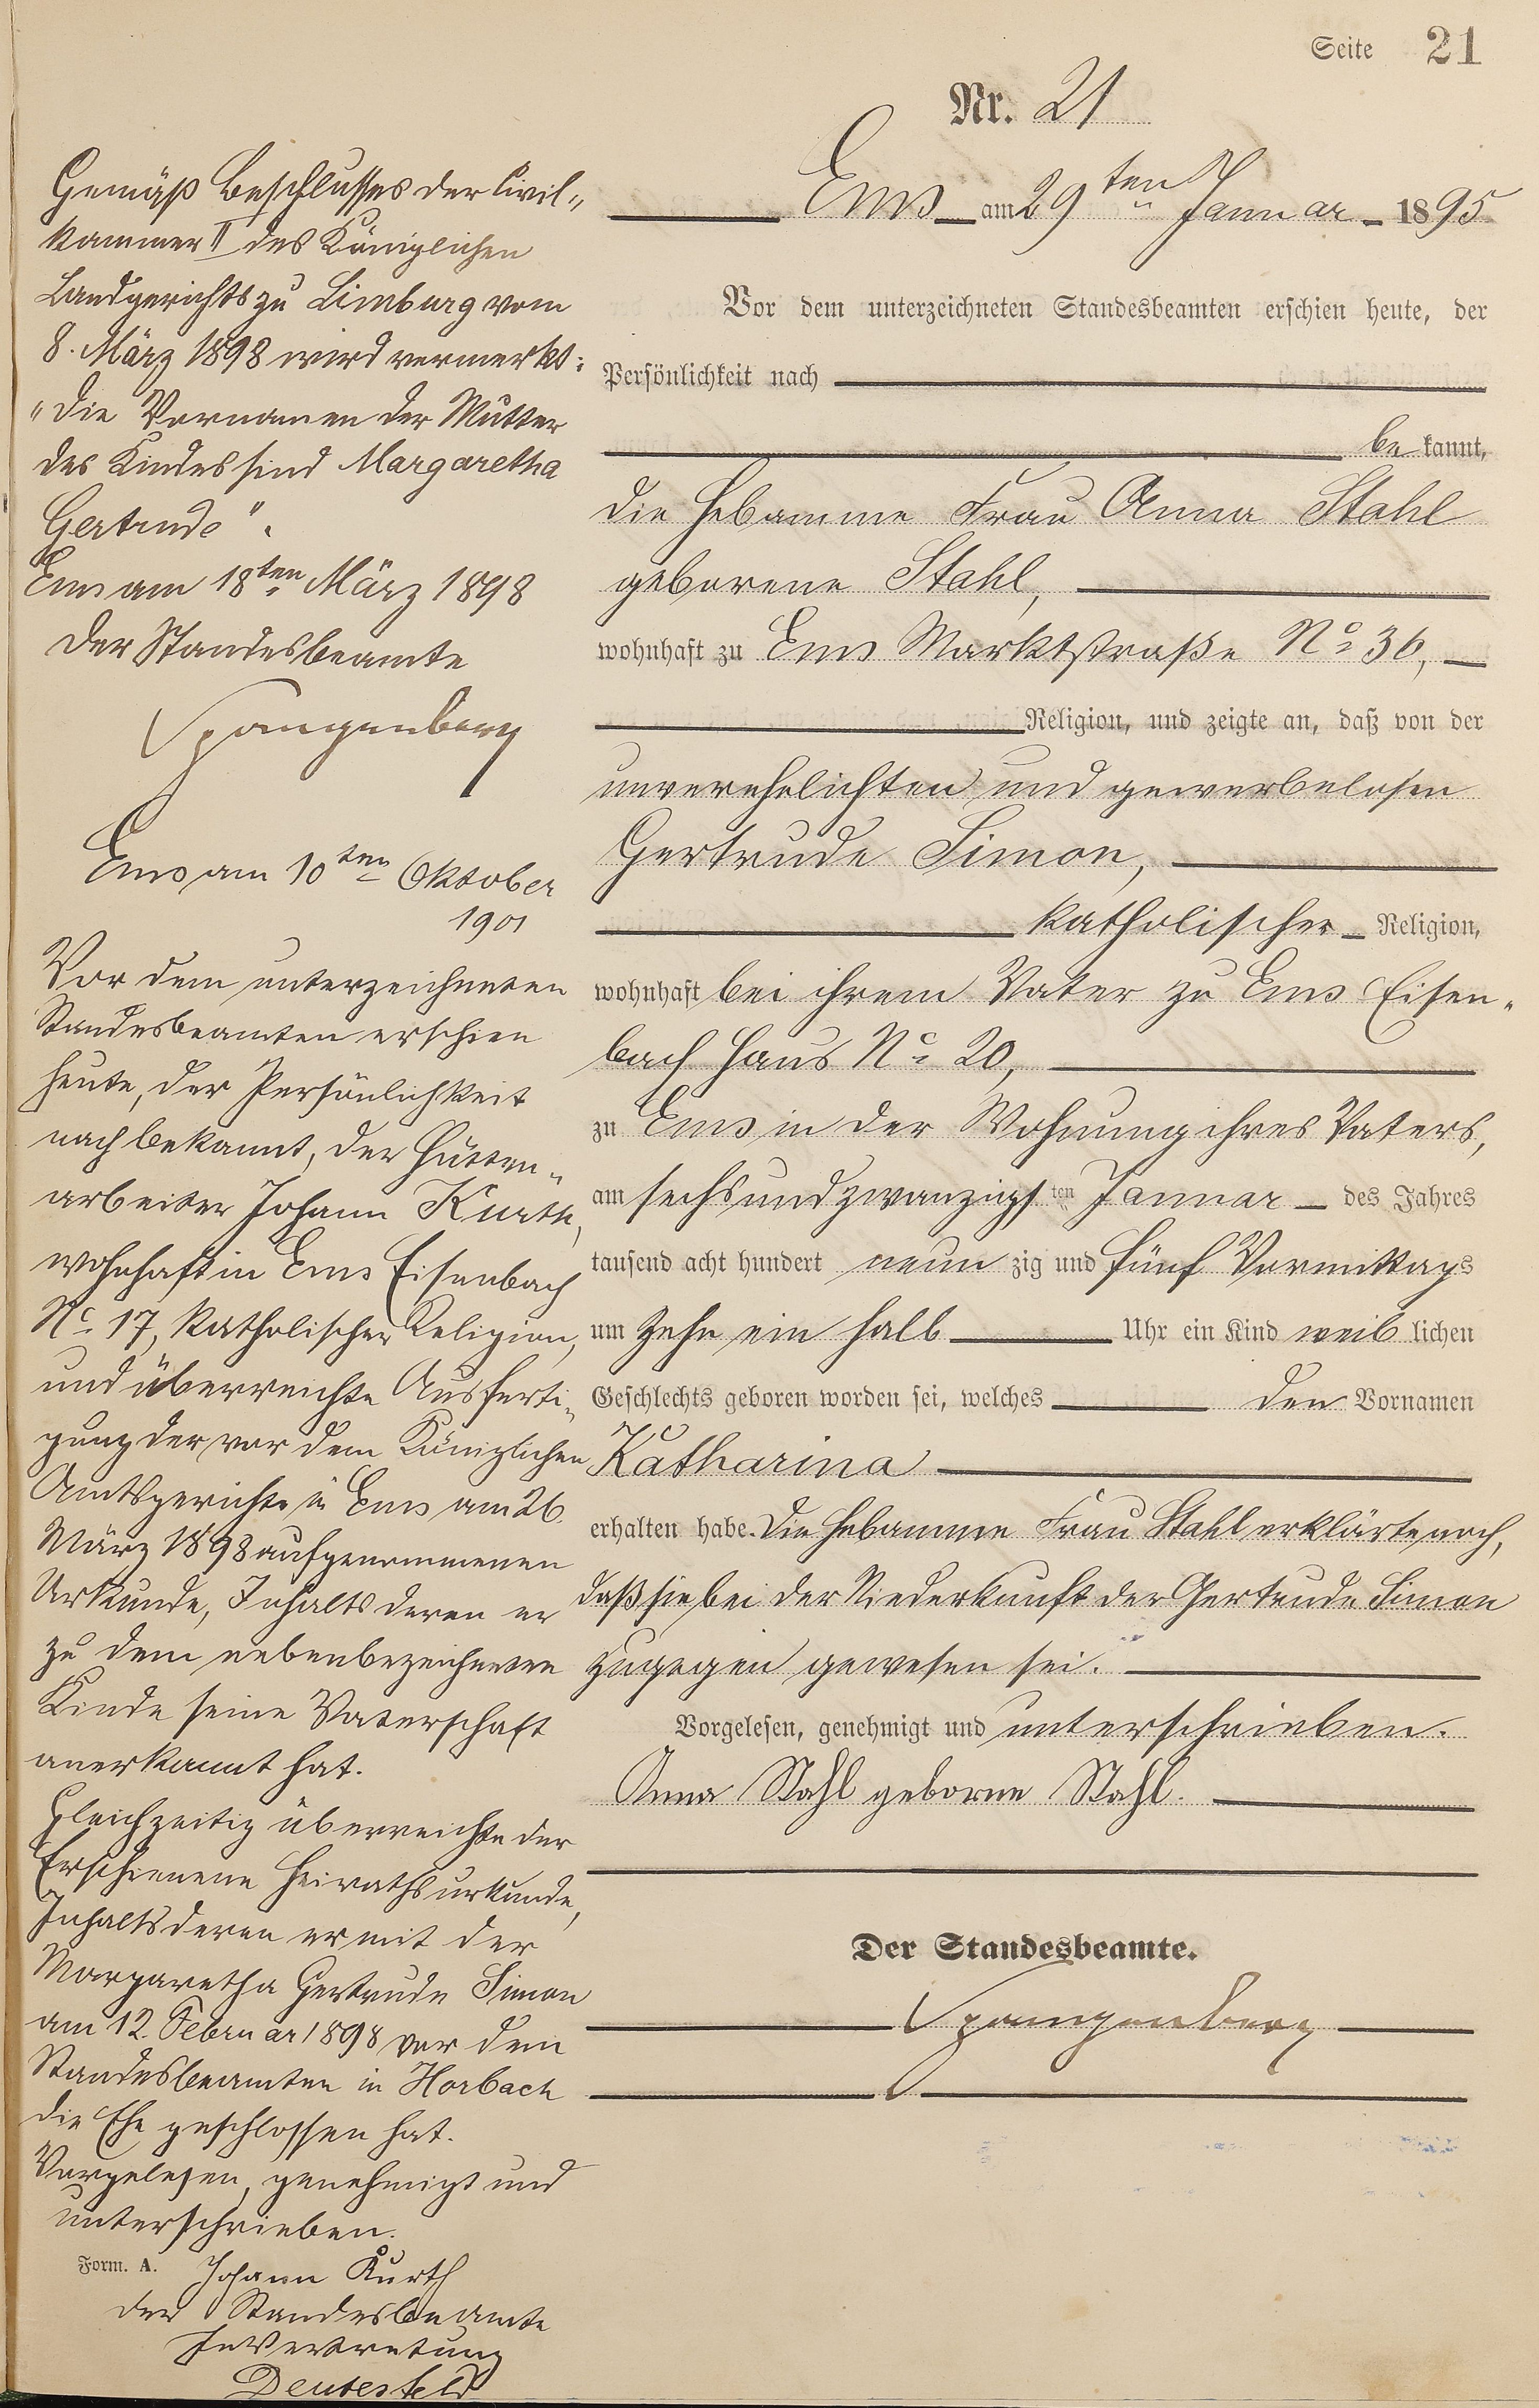 Seite 21
Nr. 21
Ems am 29ten Januar 1895
Vor dem unterzeichneten Standesbeamten erschien heute, der
Persönlichkeit nach
be kannt,
die Hebamme Frau Anna Stahl
geborene Stahl,
wohnhaft zu Ems Marktstraße No 36,
Religion, und zeigte an, daß von der
unverehelichten und gewerbelosen
Gertrude Simon,
katholischer Religion,
wohnhaft bei ihrem Vater zu Ems Eisen-
bach Haus No 20,
zu Ems in der Wohnung ihres Vaters,
am sechsundzwanzigsten Januar des Jahres
tausend acht hundert neun zig und fünf Vormittags
um zehn ein halb Uhr ein Kind weib lichen
Geschlechts geboren worden sei, welches den Vornamen
Katharina
erhalten habe. Die Hebamme Frau Stahl erklärte noch,
daß sie bei der Niederkunft der Gertrude Simon
zugegen gewesen sei.
Vorgelesen, genehmigt und unterschrieben.
Anna Stahl geborne Stahl.
Der Standesbeamte.
Spangenberg
Gemäß Beschlusses der Civil-
kammer II des Königlichen
Landgerichts zu Limburg vom
8. März 1898 wird vermerkt:
"die Vornamen der Mutter
des Kindes sind Margaretha
Gertrude".
Ems am 18ten März 1898
Der Standesbeamte
Spangenberg
Ems am 10ten Oktober
1901
Vor dem unterzeichneten
Standesbeamten erschien
heute, der Persönlichkeit
nach bekannt, der Hütten-
arbeiter Johann Kurth,
wohnhaft in Ems Eisenbach
No 17, katholischer Religion,
und überreichte Ausferti-
gung der vor dem Königlichen
Amtsgerichte in Ems am 26.
März 1898 aufgenommenen
Urkunde, Inhalts deren er
zu dem nebenbezeichneten
Kinde seine Vaterschaft
anerkannt hat.
Gleichzeitig überreichte der
Erschienene Heirathsurkunde,
Inhalts deren er mit der
Margaretha Gertrude Simon
am 12. Februar 1898 vor dem
Standesbeamten in Horbach
die Ehe geschlossen hat.
Vorgelesen, genehmigt und
unterschrieben.
Form. A. Johann Kurth
Der Standesbeamte
In Vertretung